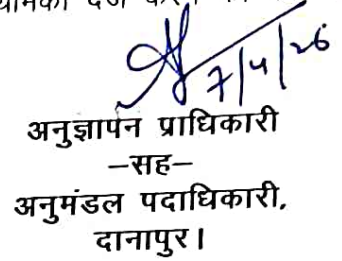 दर्ज
7/4/26
अनुज्ञापन प्राधिकारी
–सह–
अनुमंडल पदाधिकारी,
दानापुर।